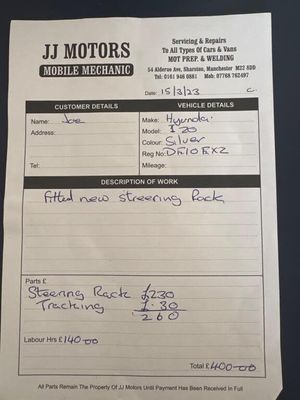 JJ MOTORS
MOBILE MECHANIC
Servicing & Repairs
To All Types Of Cars & Vans
MOT PREP. & WELDING
54 Alderue Ave, Sharston, Manchester M22 8DD
Tel: 0161 946 0881 Mob: 07768 762497
Date: 15/3/23
CUSTOMER DETAILS
Name: Joe
Address:
Tel:
VEHICLE DETAILS
Make: Hyundai
Model: I20
Colour: Silver
Reg No:
Mileage:
DESCRIPTION OF WORK
fitted new streering Rack
Parts £
Steering Rack £230
Tracking £.30
260
Labour Hrs £140-00
Total £400-00
All Parts Remain The Property Of JJ Motors Until Payment Has Been Received In Full